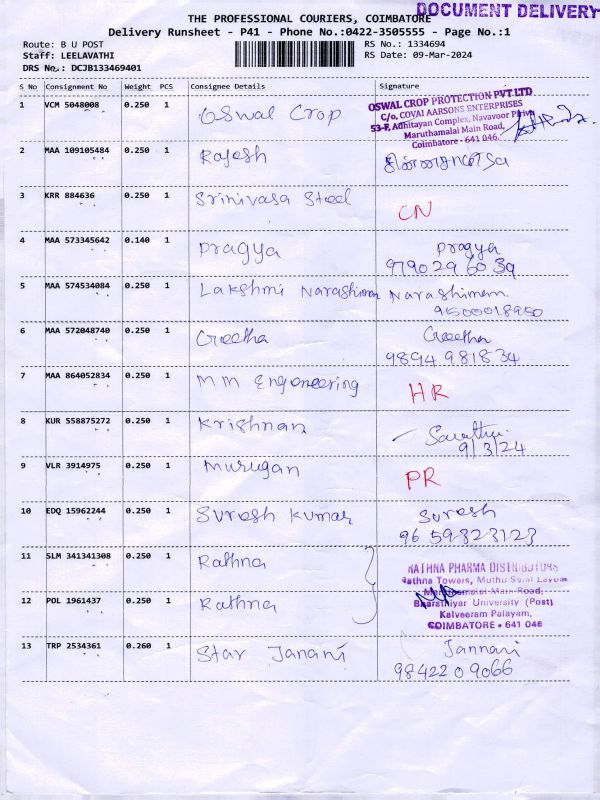 DOCUMENT DELIVERY
THE PROFESSIONAL COURIERS, COIMBATORE
Delivery Runsheet - P41 - Phone No.:0422-3505555 - Page No.:1
Route: B U POST RS No.: 1334694
Staff: LEELAVATHI RS Date: 09-Mar-2024
DRS No.: DCJB133469401
S No Consignment No Weight PCS Consignee Details Signature
1 VCM 5048008 0.250 1 Oswal Crop
OSWAL CROP PROTECTION PVT LTD
C/o, COVAI AARSONS ENTERPRISES
53-F, Adhitayan Complex, Navavoor Pirivu
Maruthamalai Main Road,
Coimbatore - 641 046.
2 MAA 109105484 0.250 1 Rajesh
3 KRR 884636 0.250 1 Srinivasa Steel CN
4 MAA 573345642 0.140 1 Pragya Pragya
97902 96039
5 MAA 574534084 0.250 1 Lakshmi Narashiman Narashimam
9500018950
6 MAA 572048740 0.250 1 Geetha Geetha
9894 981834
7 MAA 864052834 0.250 1 MM Engeneering HR
8 KUR 558875272 0.250 1 Krishnan
9/3/24
9 VLR 3914975 0.250 1 Murugan PR
10 EDQ 15962244 0.250 1 Suresh Kumar Suresh
96 59823123
11 SLM 341341308 0.250 1 Rathna
12 POL 1961437 0.250 1 Rathna
RATHNA PHARMA DISTRIBUTORS
Rathna Towers, Muthu
Main Road,
Bharathiyar University (Post)
Kalveeram Palayam,
COIMBATORE - 641 046
13 TRP 2534361 0.260 1 Star Janani Jannani
98422 09066